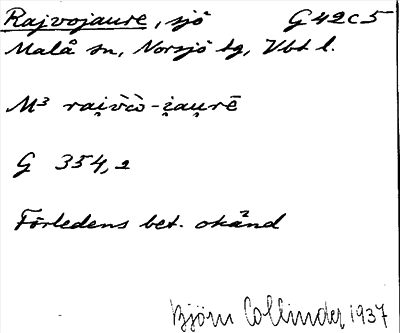 Rajvojaure, sjö G42c5
Malå sn, Norsjö tg, Vbt l.
M³ rai̯vò̀-i̯au̯rē
G 354,2
Förledens bet. okänd
Björn Collinder 1937